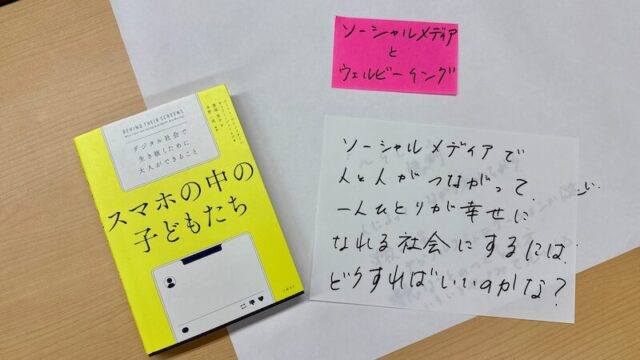 ソーシャルメディア
と
ウェルビーイング
BEHIND THEIR SCREENS
デジタル社会で
生き抜くために
大人ができること
スマホの中の
子どもたち
ソーシャルメディアで
人と人がつながって、
一人ひとりが幸せに
なれる社会にするには、
どうすればいいのかな?